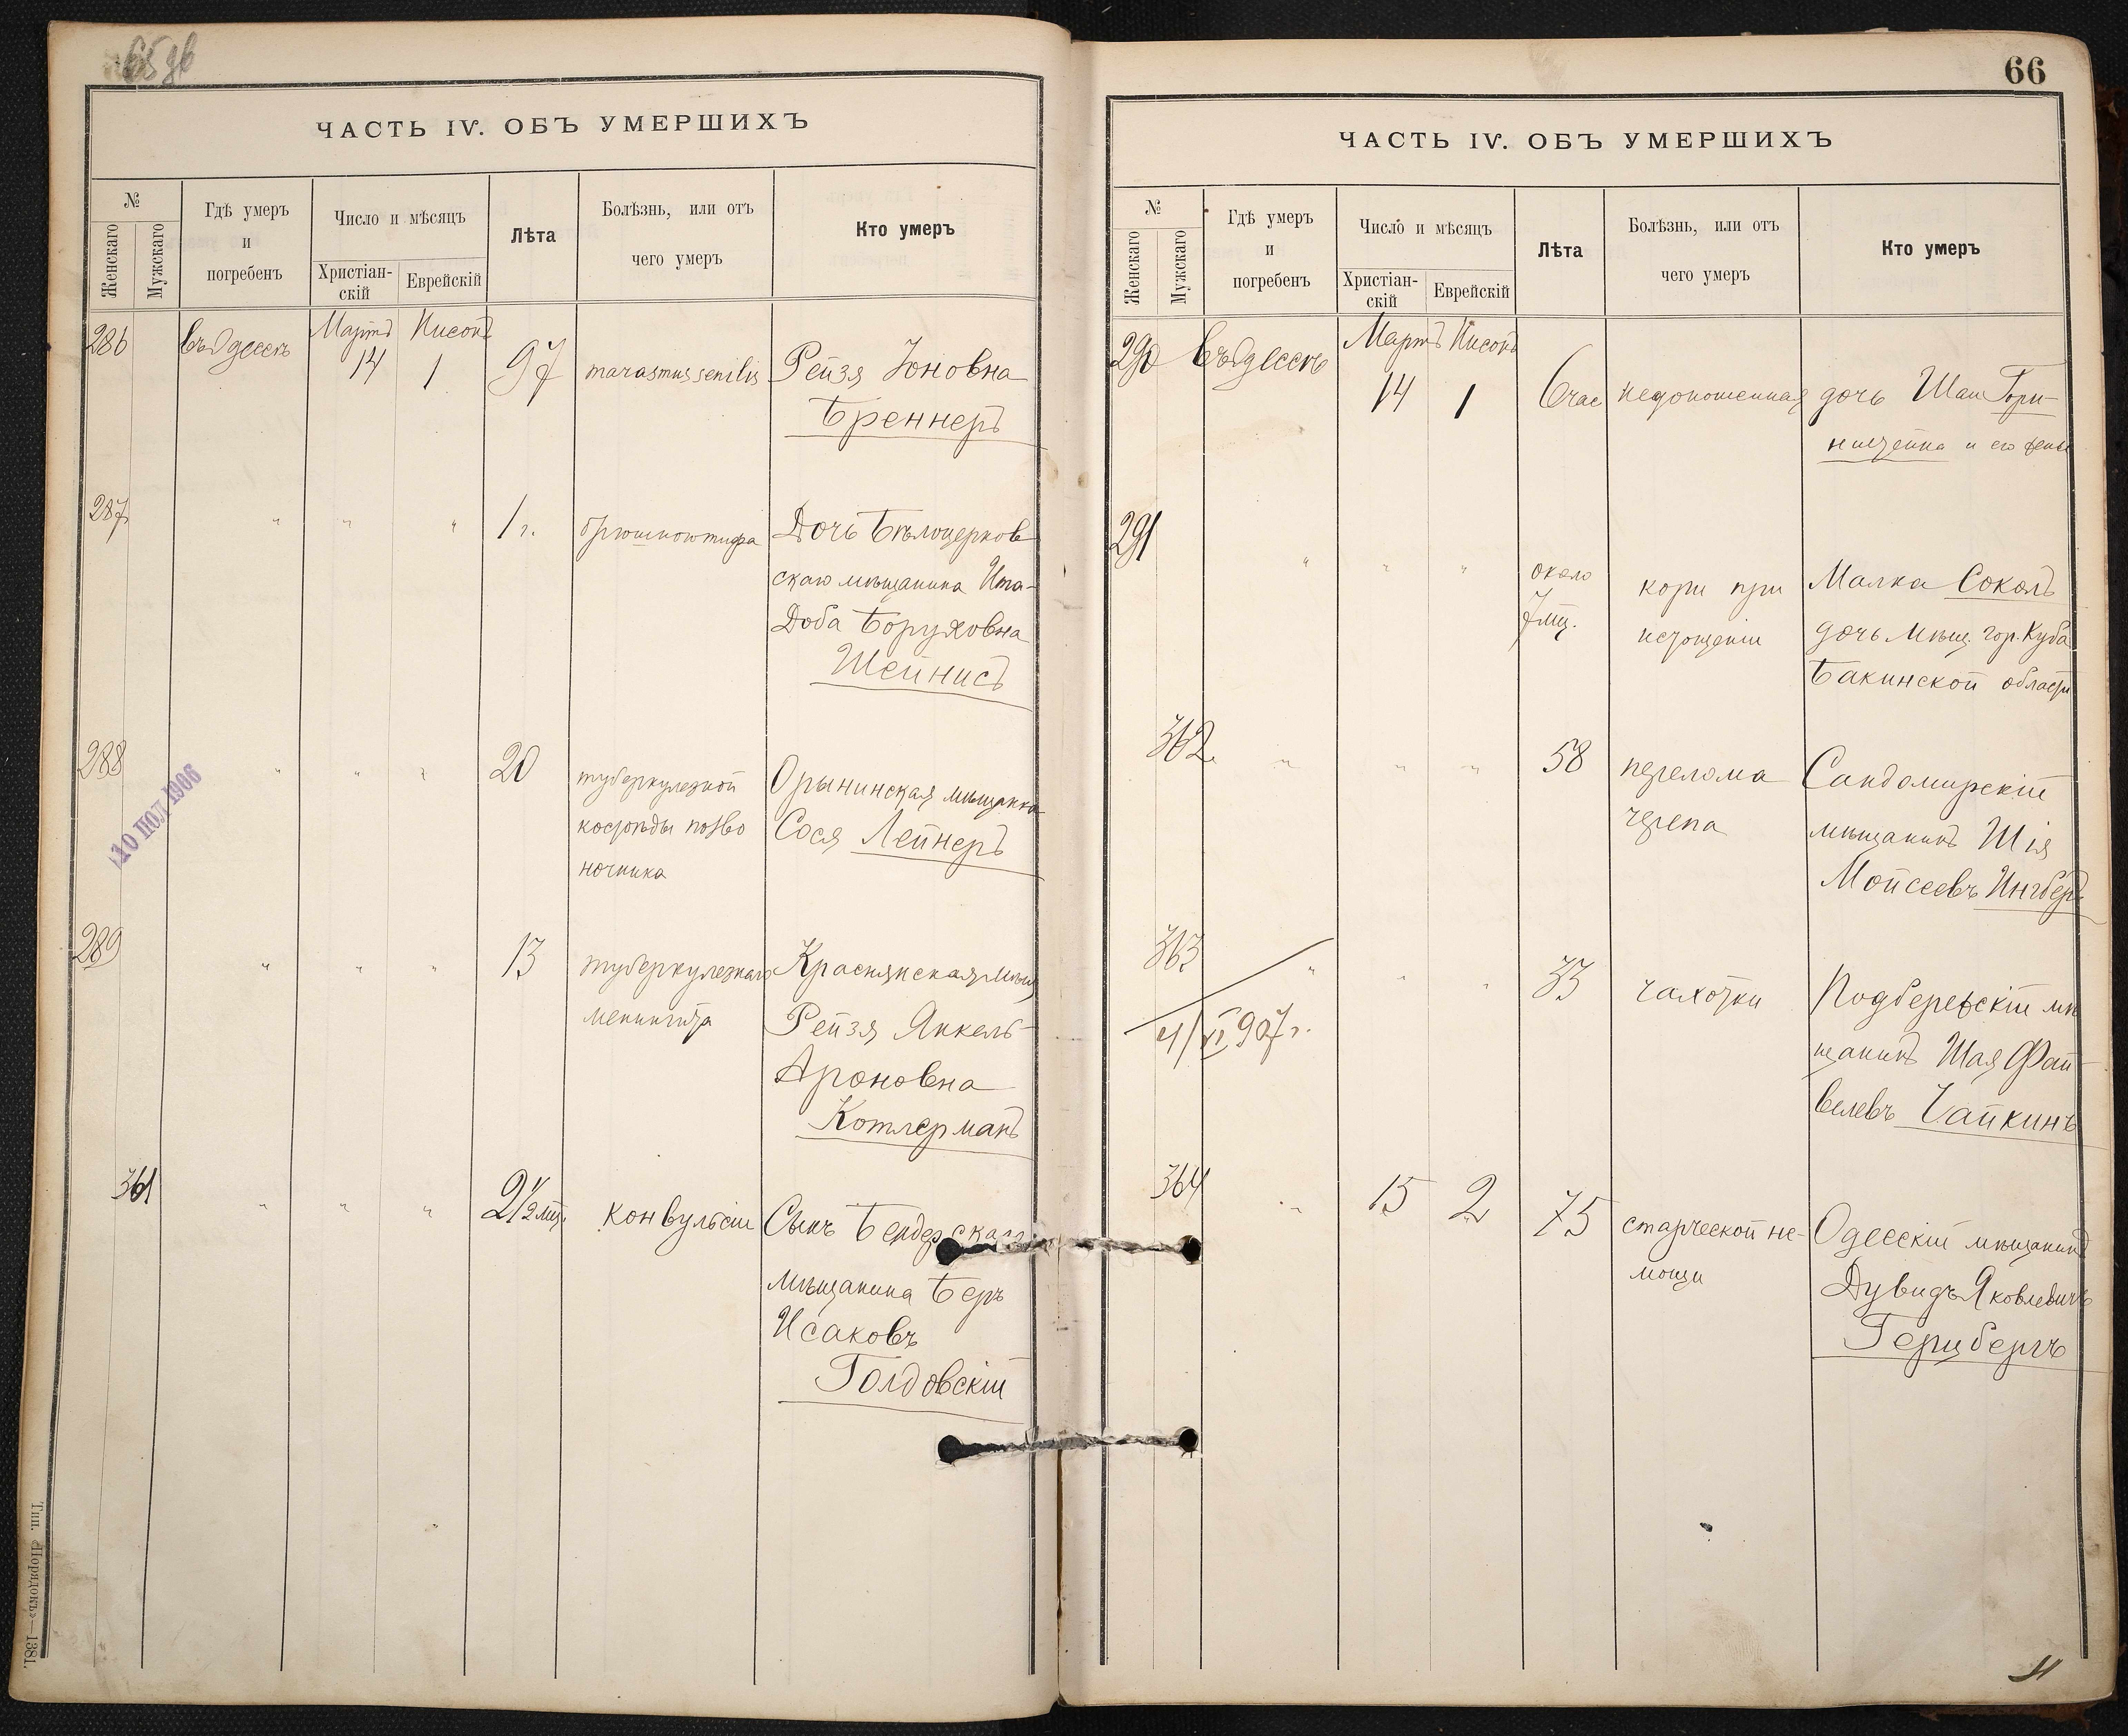 65 об
ЧАСТЬ IV. ОБЪ УМЕРШИХЪ
№
Женскаго
Мужскаго
Гдѣ умеръ
и
погребенъ
Число и мѣсяцъ
Христіан-
скій
Еврейскій
Лѣта
Болѣзнь, или отъ
чего умеръ
Кто умеръ
286 въ Одессѣ Мартъ 14 Нисонъ 1 97 marasmus senilis Рейзя Юновна
Бреннеръ
287 " " " 1 г. брюшного тифа Дочь Бѣлоцерков
скаго мѣщанина Ита-
Доба Боруховна
Шейнисъ
288 " " " 20 туберкулезной Орынинская мѣщанка
костоѣды позво Сося Лейнеръ
ночника
10 ПОЛ 1906
289 " " " 13 туберкулезнаго Краснянская мѣщ
менингита Рейзя Янкель-
Ароновна
Котлерманъ
361 " " " 2 1/2 мѣс. конвульсіи Сынъ Бендерскаго
мѣщанина Беръ
Исаковъ
Голдовскій
Тип. «Порядокъ»—1381.
66
ЧАСТЬ IV. ОБЪ УМЕРШИХЪ
№
Женскаго
Мужскаго
Гдѣ умеръ
и
погребенъ
Число и мѣсяцъ
Христіан-
скій
Еврейскій
Лѣта
Болѣзнь, или отъ
чего умеръ
Кто умеръ
290 въ Одессѣ Мартъ 14 Нисонъ 1 6 час недоношенная дочь Шаи Гори-
ницейна и его жены
291 " " " около Малка Соколъ
7 мѣц. кори при дочь мѣщ. гор. Куба
истощеніи Бакинской области
362 " " " 58 перелома Сандомирскій
черепа мѣщанинъ Шія
Мойсеевъ Ингберъ
363 " " " 33 чахотки Подберезскій мѣ
4/XI 907 г. щанинъ Шая Фай-
велевъ Чапкинъ
364 " 15 2 75 старческой не- Одесскій мѣщанинъ
мощи Дувидъ Яковлевичъ
Герцбергъ